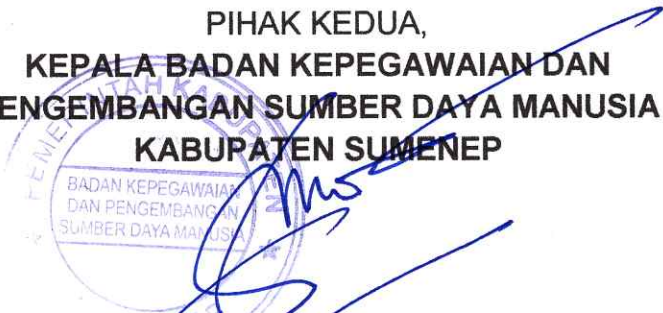 PIHAK KEDUA,
KEPALA BADAN KEPEGAWAIAN DAN
ENGEMBANGAN SUMBER DAYA MANUSIA
KABUPATEN SUMENEP
PEMERINTAH KABUPATEN
BADAN KEPEGAWAIAN
DAN PENGEMBANGAN
SUMBER DAYA MANUSIA